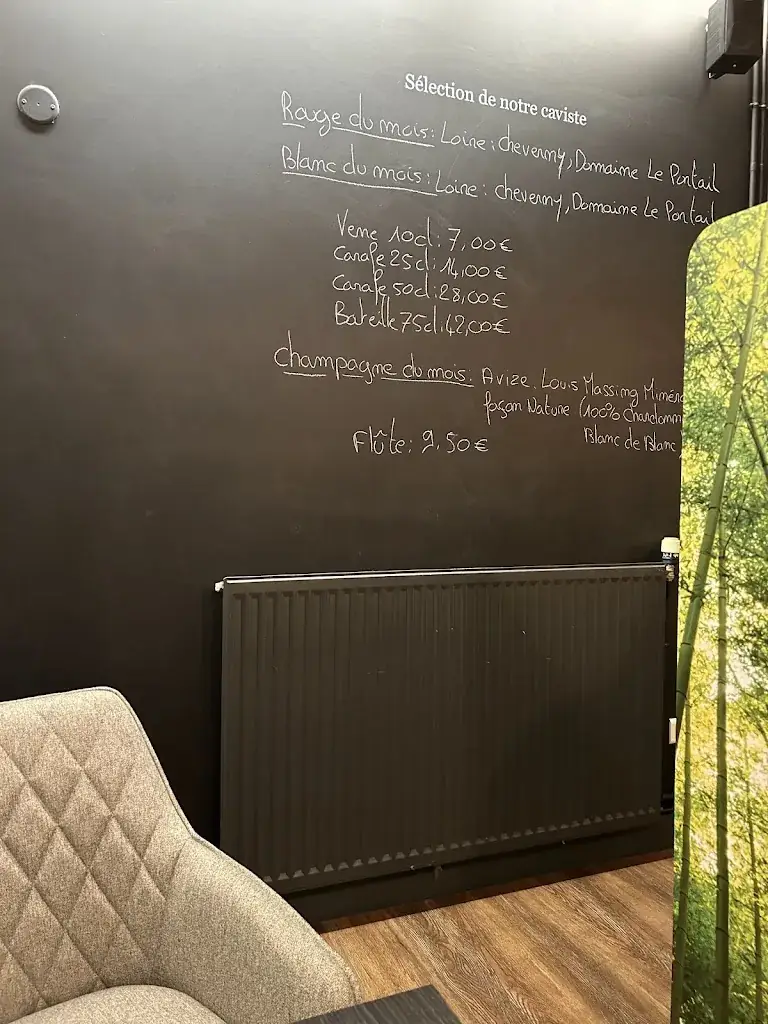 Sélection de notre caviste
Rouge du mois: Loire: cheverny, Domaine Le Portail
Blanc du mois: Loire: cheverny, Domaine Le Portail
Verre 10cl: 7,00€
Carafe 25cl: 14,00€
Carafe 50cl: 28,00€
Bouteille 75cl: 42,00€
champagne du mois: Avize. Louis Massing
façon Nature (100%
Blanc de Blanc
Flûte: 9.50€